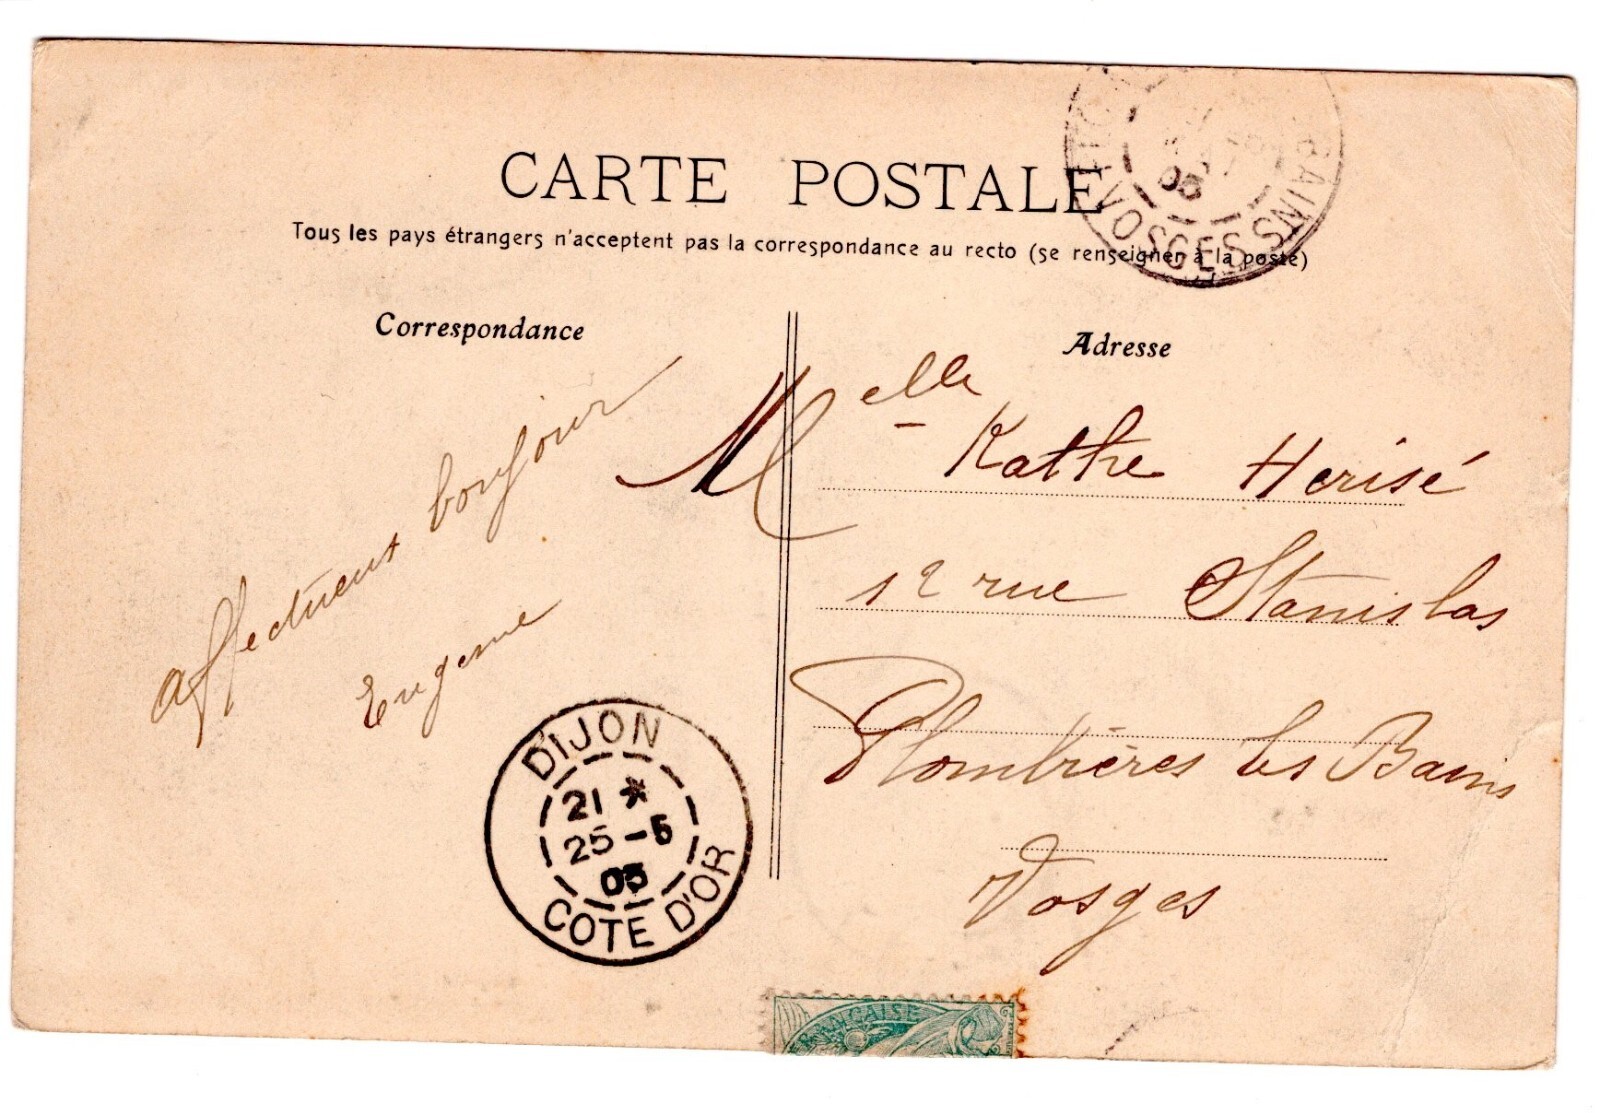 CARTE POSTALE
Tous les pays étrangers n'acceptent pas la correspondance au recto (se renseigner à la poste)
BAINS
VOSGES
05
Correspondance
Adresse
affectueux bonjour
Eugenie
Melle
Kathe Herisé
12 rue Stanislas
Plombières les Bains
Vosges
DIJON
21 *
25 -5
05
COTE D'OR
FRANÇAISE